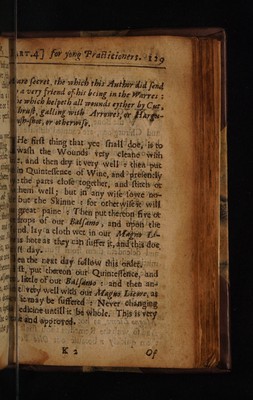 ART.4] for yong Practitioners. 119
secret, the which this Author did send
a very friend of his being in the Warres:
which helpeth all wounds eyther by Cut,
thrust, galling with Arrowes, or Hargu-
ush-shot, or otherwise.
He first thing that yee shall doe, is to
wash the Wounds very cleane with
, and then dry it very well : then put
Quintessence of Wine, and presently
the parts close together, and stitch or
them well: but in any wise sowe no-
but the Skinne : for otherwise it will
great paine : Then put thereon five or
drops of our Balsamo, and upon the
nd, lay a cloth wet in our Magno Li-
as hote as they can suffer it, and this doe
st day.
en the next day follow this order,
st, put thereon our Quintessence, and
little of our Balsamo : and then an-
very well with our Magno Licore, as
it may be suffered : Never changing
edicine untill it be whole. This is very
and approved.
K 2 Of